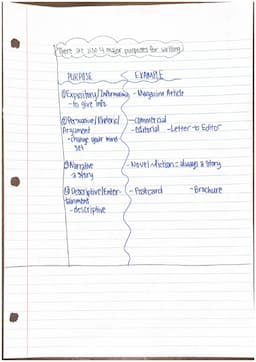 There are also 4 major purposes for writing
PURPOSE
EXAMPLE
① Expository/Informative
- to give info.
- Magazine Article
② Persuasive/Rhetorical/
Argument
- change your mind
set
- commercial
- editorial - Letter to Editor
③ Narrative
- a story
- Novel - fiction = always a story
④ Descriptive/Enter-
tainment
- descriptive
- Postcard - Brochure